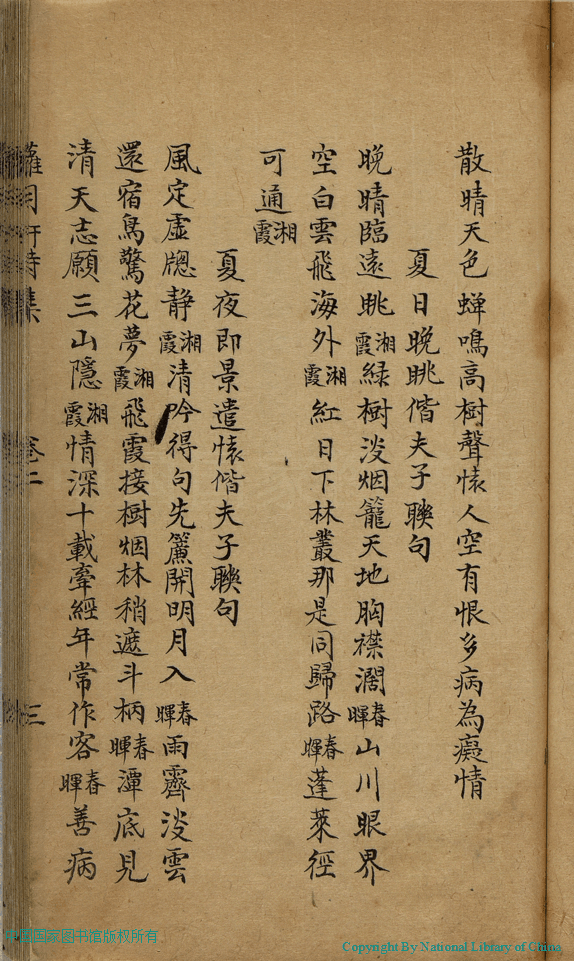 散晴天色蟬鳴高樹聲懐人空有恨多病為癡情
夏日晩眺偕夫子聮句
晩晴臨遠眺湘霞緑樹淡烟籠天地胸襟濶春暉山川眼界
空白雲飛海外湘霞紅日下林叢那是同歸路春暉蓬萊徑
可通湘霞
夏夜即景遣懐偕夫子聮句
風定虛牕静湘霞清吟得句先簾開明月入春暉雨霽淡雲
還宿鳥驚花夢湘霞飛霞接樹烟林稍遮斗柄春暉潭底見
清天志願三山隱湘霞情深十載牽經年常作客春暉善病
月軒詩集 卷二 三
中国国家图书馆版权所有
Copyright By National Library of China